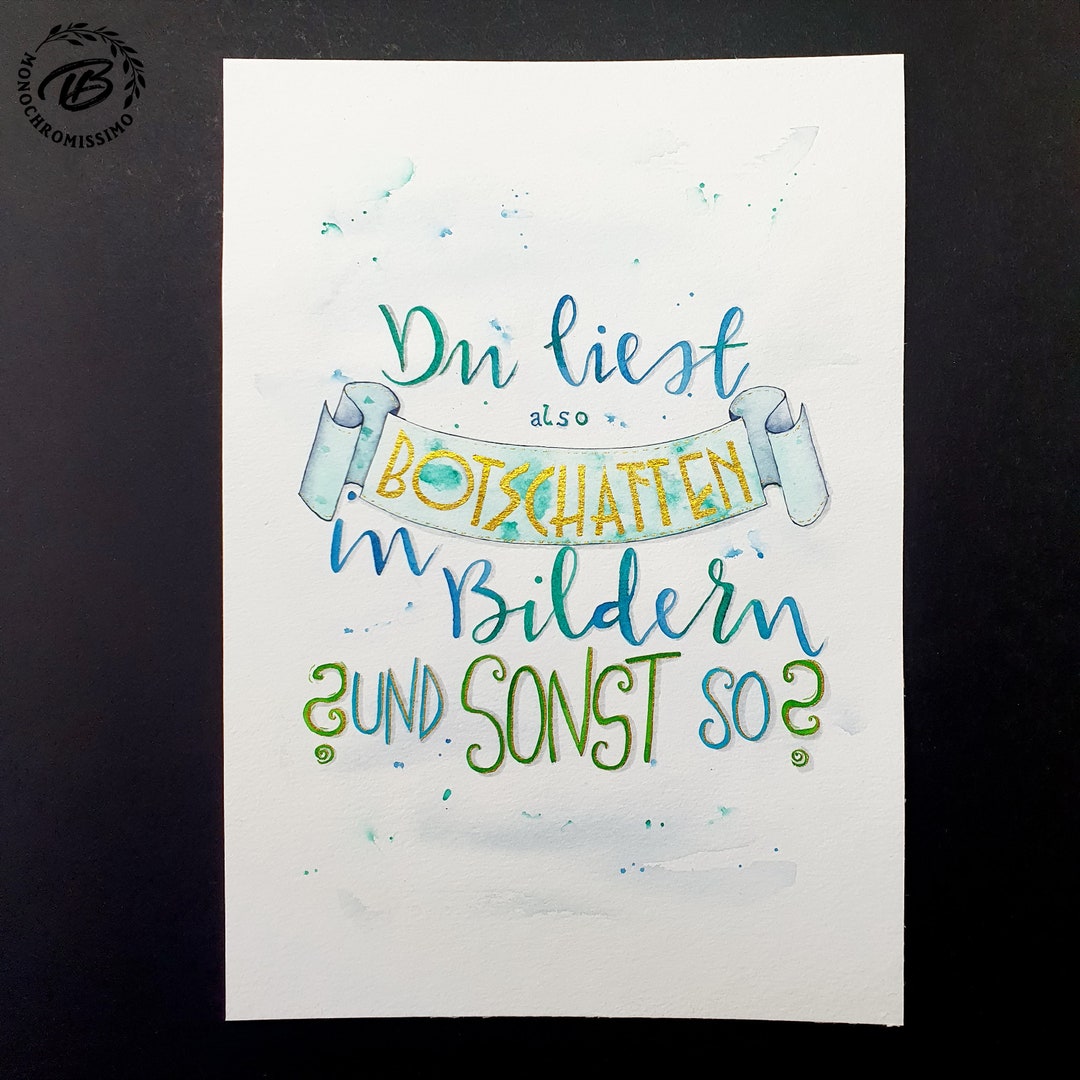 MONOCHROMISSIMO
TB
Du liest
also
BOTSCHAFTEN
in
Bildern
?UND SONST SO?